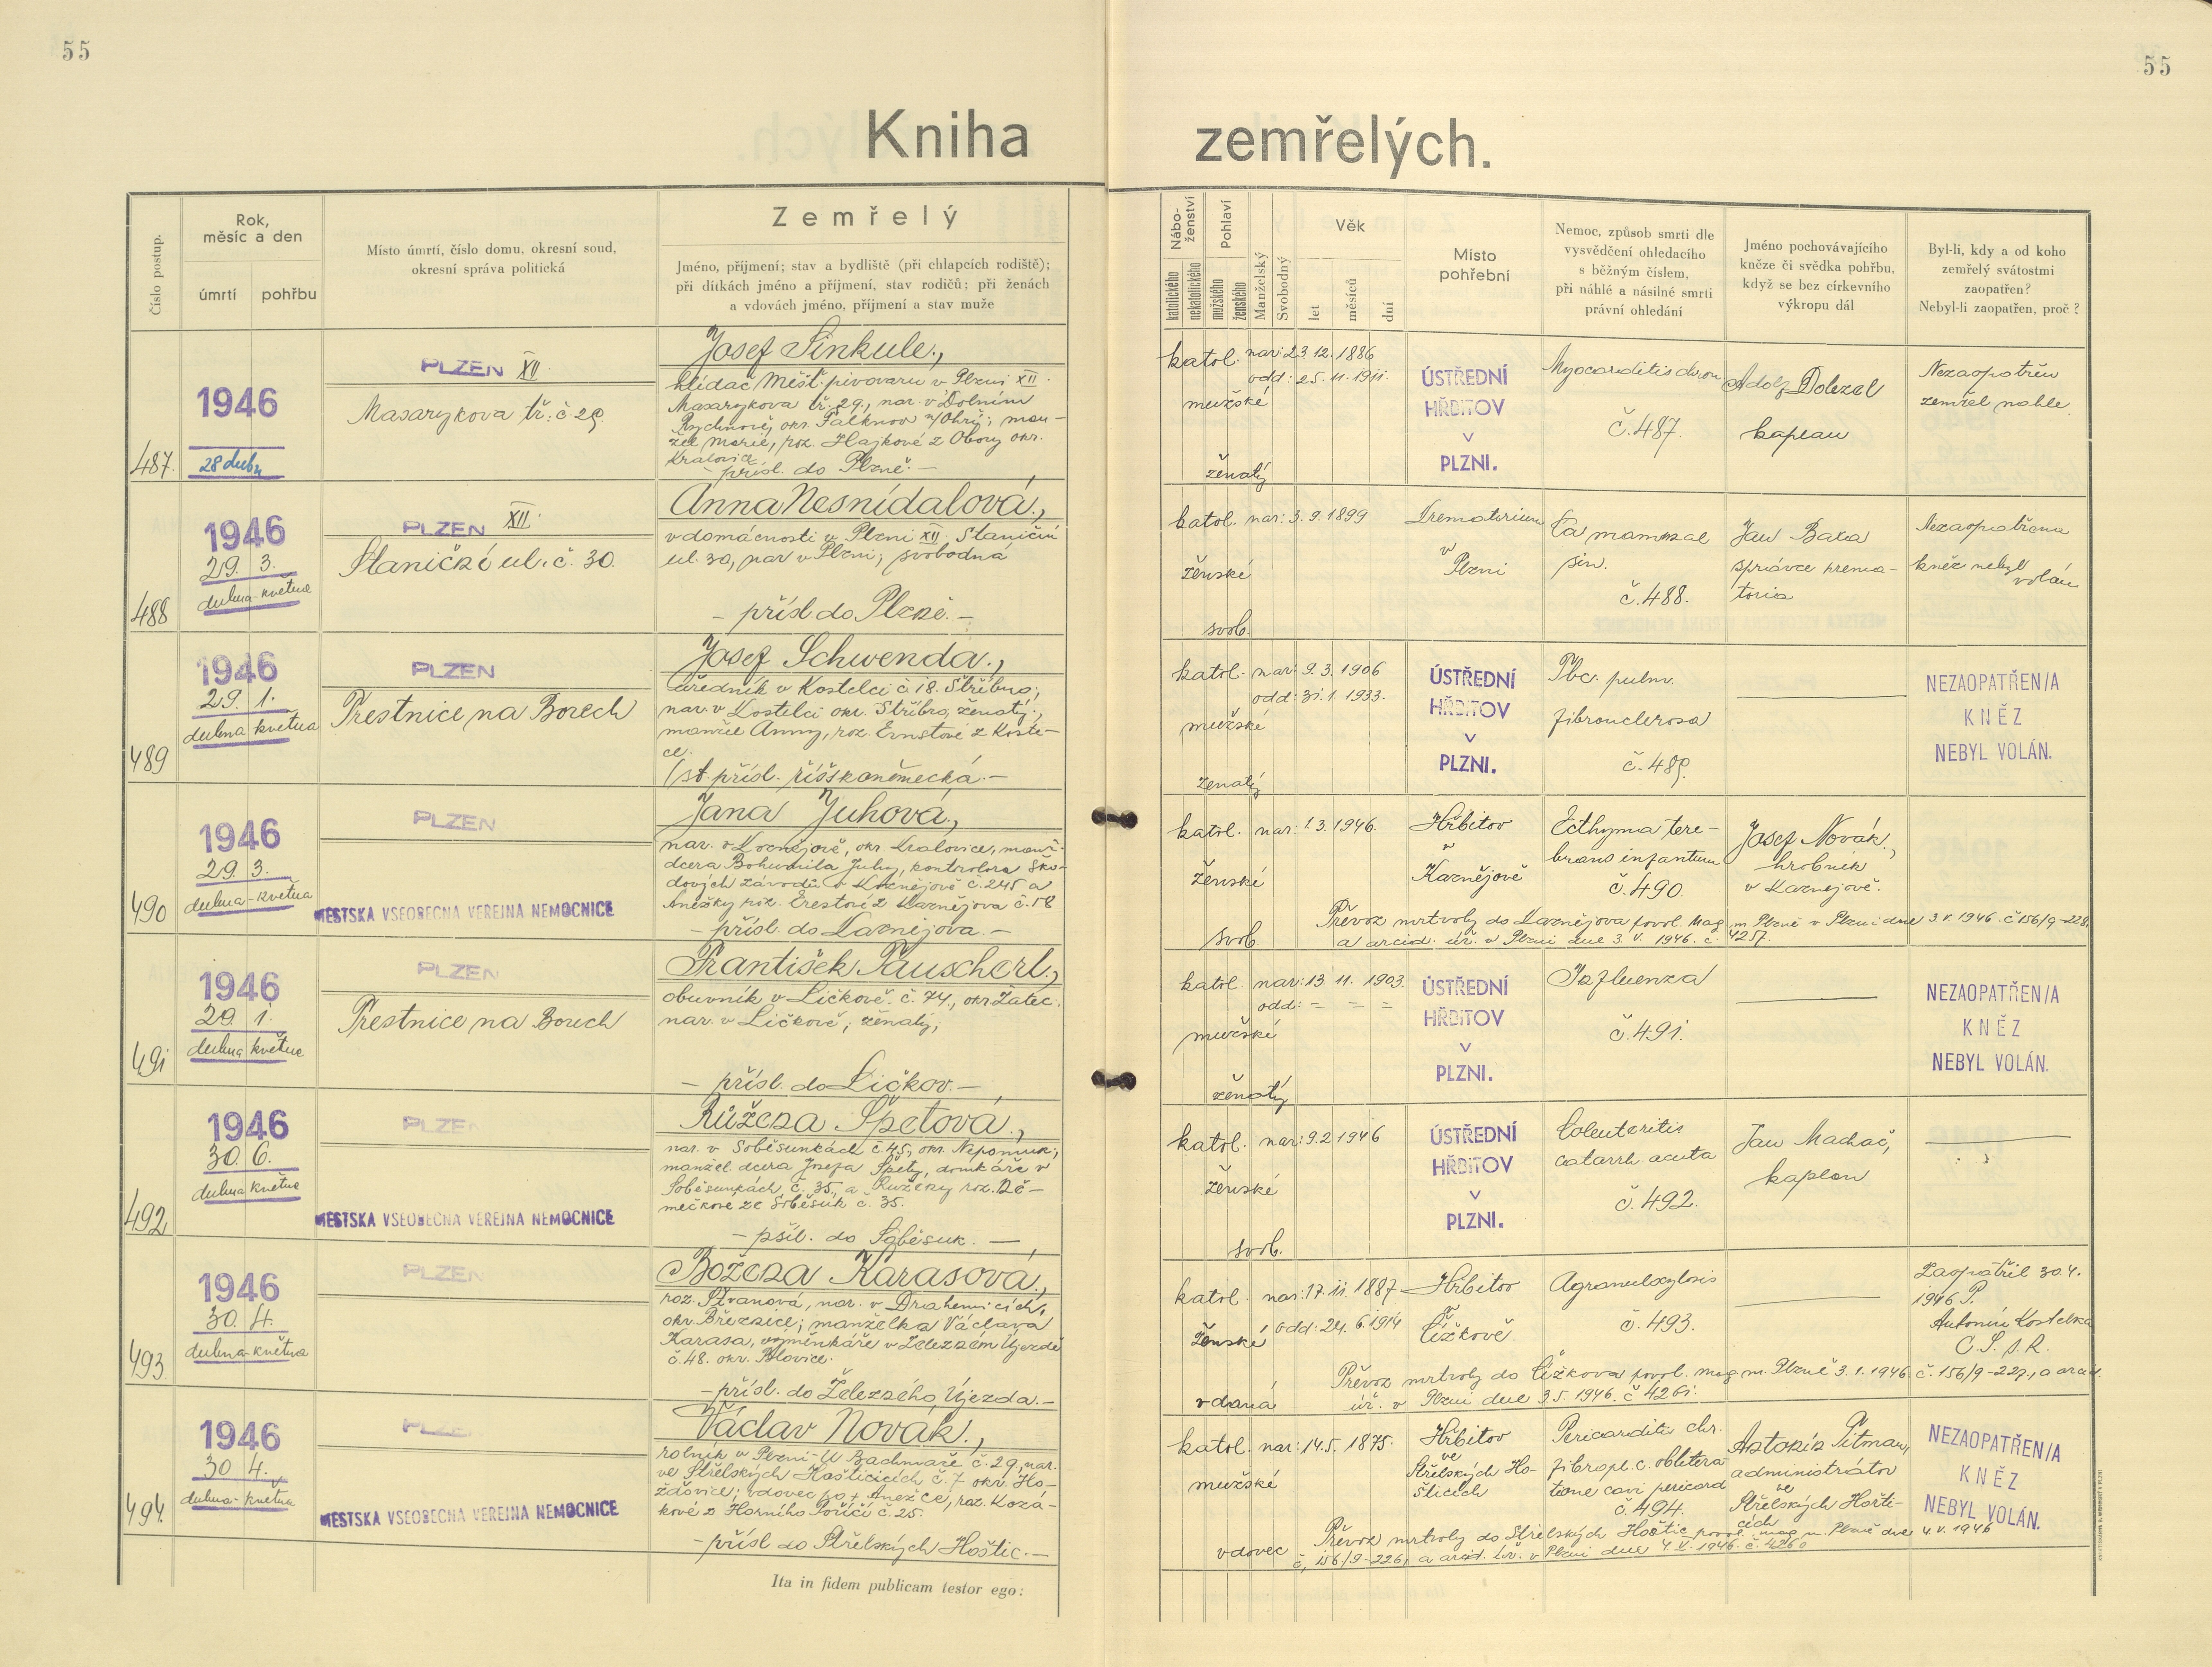 55
55
Kniha zemřelých.
Číslo postup.
Rok,
měsíc a den
úmrtí
pohřbu
Místo úmrtí, číslo domu, okresní soud,
okresní správa politická
Zemřelý
Jméno, příjmení; stav a bydliště (při chlapcích rodiště);
při dítkách jméno a příjmení, stav rodičů; při ženách
a vdovách jméno, příjmení a stav muže
Nábo-
ženství
katolického
nekatolického
Pohlaví
mužského
ženského
Manželský
Svobodný
Věk
let
měsíců
dní
Místo
pohřební
Nemoc, způsob smrti dle
vysvědčení ohledacího
s běžným číslem,
při náhlé a násilné smrti
právní ohledání
Jméno pochovávajícího
kněze či svědka pohřbu,
když se bez církevního
výkropu dál
Byl-li, kdy a od koho
zemřelý svátostmi
zaopatřen?
Nebyl-li zaopatřen, proč?
487.
1946
28 dubn
PLZEN XII.
Masarykova tř. č 29.
Josef Sinkule.,
hlídač Měšť. pivovaru v Plzni XII.
Masarykova tř. 29., nar. v Dolním
Rychnově, okr. Falknov n/Ohří; man-
žel Marie, roz. Hajkové z Obory okr.
Kralovic
- přísl. do Plzně. -
katol.
mužské
ženatý
nar: 23. 12. 1886
odd: 25. 11. 1911.
ÚSTŘEDNÍ
HŘBITOV
V
PLZNI.
Myocarditis chron
č. 487.
Adolf Dolezal
kaplan
Nezaopatřen
zemřel nahle.
488
1946
29. 3.
dubna - května
PLZEN XII.
Staniční ul. č. 30.
Anna Nesnídalová.,
v domácnosti v Plzni XII, Staniční
ul. 30, nar v Plzni; svobodná
- přísl. do Plzně. -
katol.
ženské
svob.
nar: 3. 9. 1899
Krematorium
v
Plzni
Ca mammae
sin.
č. 488.
Jan Bara
správce krema-
toria
Nezaopatřena
kněz nebyl
volán
489
1946
29. 1.
dubna května
PLZEN
Trestnice na Borech
Josef Schwenda.,
úředník v Kostelci č 18. Stříbro;
nar. v Kostelci okr. Stříbro, ženatý;
manžel Anny, roz. Ernstové z Koste-
ce.
(st. přísl. říšskoněmecká. -
katol.
mužské
ženatý
nar: 9. 3. 1906
odd: 31. 1. 1933.
ÚSTŘEDNÍ
HŘBITOV
V
PLZNI.
Tbc. pulm.
č. 489.
NEZAOPATŘEN/A
KNĚZ
NEBYL VOLÁN.
490
1946
29. 3.
dubna - května
PLZEN
MESTSKA VSEOBECNA VEREJNA NEMOCNICE
Jana Juhová,
nar. v Kaznějově, okr. Kralovice, manž.
dcera Bohumila Juhy, kontrolora Ško-
dových závodů v Kaznějově č. 245 a
Anežky roz. Erestové z Kaznějova č. 58
- přísl. do Kaznějova. -
katol.
ženské
svob
nar: 1. 3. 1946.
Hřbitov
v
Kaznějově
Ecthyma tere-
brans infantum
č. 490.
Josef Novák.,
hrobník
v Kaznějově.
Převoz mrtvoly do Kaznějova povol. Mag. m Plzně v Plzni dne 3. V. 1946. č 156/9-228,
a arcid. úř. v Plzni dne 3. V. 1946. č. 4257.
491
1946
29. 1.
dubna května
PLZEN
Trestnice na Borech
František Pauscherl.,
obuvník v Ličkově. č. 74., okr Žatec.
nar. v Ličkově; ženatý;
- přísl. do Ličkov. -
katol.
mužské
ženatý
nar: 13. 11. 1903.
odd: = = =
ÚSTŘEDNÍ
HŘBITOV
V
PLZNI.
Influenza
č. 491.
NEZAOPATŘEN/A
KNĚZ
NEBYL VOLÁN.
492
1946
30. 6.
dubna května
PLZEN
MESTSKA VSEOBECNA VEREJNA NEMOCNICE
Růžena Špetová.,
nar. v Soběsunkách č. 45, okr. Nepomuk;
manžel. dcera Josefa Špety, domkáře v
Soběsunkách č. 35, a Růženy roz. Ně-
mečkové ze Soběsuk č. 35.
- přísl. do Soběsuk. -
katol.
ženské
svob.
nar: 9. 2 1946
ÚSTŘEDNÍ
HŘBITOV
V
PLZNI.
Coloenteritis
catarrh. acuta
č. 492.
Jan Machač,
kaplan
493
1946
30. 4.
dubna - května
PLZEN
Božena Karasová.,
roz. Štvanová, nar. v Drahenicích,
okr. Březnice; manželka Václava
Karasa, výměnkáře v Železném Újezdě
č. 48. okr. Blovice.
- přísl. do Železného Újezda. -
katol.
ženské
vdaná
nar: 17. 11. 1887
odd: 24. 6. 1914
Hřbitov
v
Čížkově.
č. 493.
Zaopatřil 30 4.
1946 P.
Antonín Kostelka
C. S. s. R.
Převoz mrtvoly do Čížkova povol. mag m. Plzně 3. 1. 1946. č. 156/9-227., a arcid.
úř. v Plzni dne 3. 5. 1946. č 4261.
494.
1946
30 4.
dubna - května
PLZE
MESTSKA VSEOBECNA VEREJNA NEMOCNICE
Václav Novák.,
rolník v Plzni - U Bachmače č. 29, nar.
ve Střelských Hošticicích č. 7 okr. Ho-
žďovice; vdovec po + Anežce, roz. Kozá-
kové z Horního Poříčí č. 25.
- přísl do Střelských Hoštic. -
katol.
mužské
vdovec
nar: 14. 5. 1875.
Hřbitov
ve
Střelských Ho-
šticích
Pericarditis chr.
fibropl. c. oblitera
tione cavi pericard
č. 494.
Antonín Pitman,
administrátor
ve
Střelských Hošti-
cích
NEZAOPATŘEN/A
KNĚZ
NEBYL VOLÁN.
Převoz mrtvoly do Střelských Hoštic povol. mag m. Plzně dne 4. V. 1946
č. 156/9-226, a arcid. úř. v Plzni dne 4 V. 1946. č. 4260
Ita in fidem publicam testor ego: